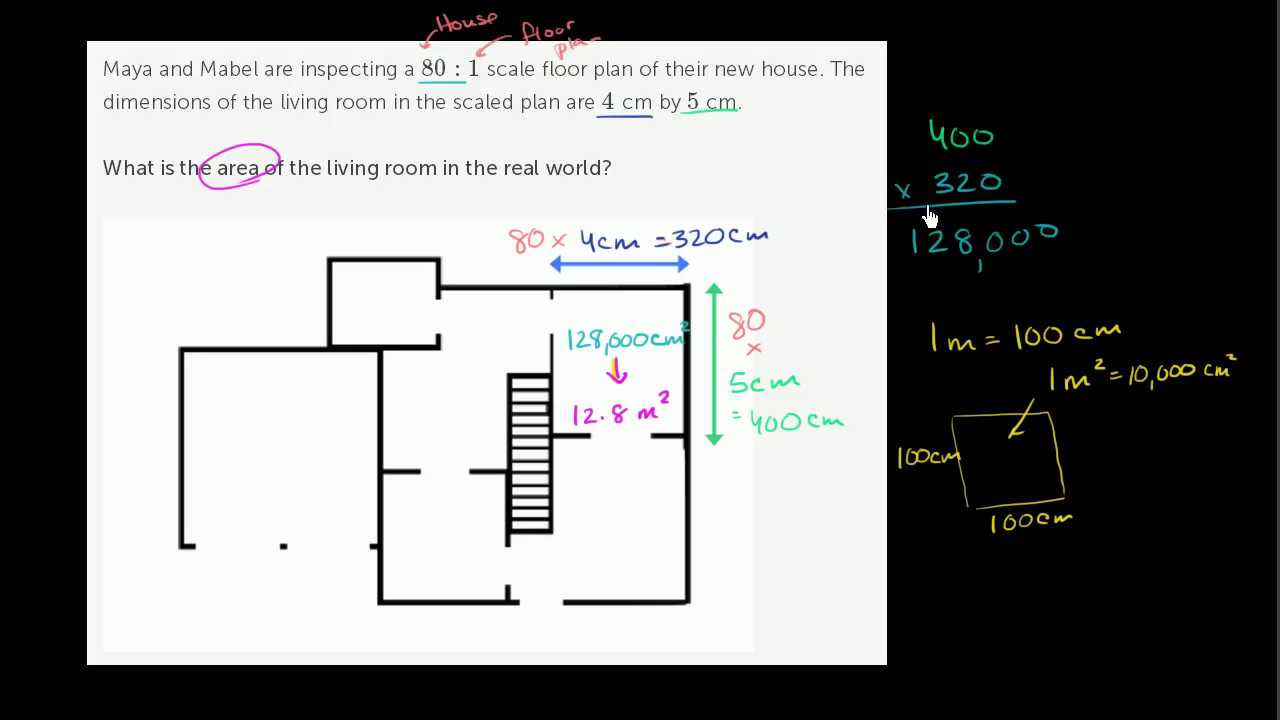 House
floor
plan
Maya and Mabel are inspecting a 80 : 1 scale floor plan of their new house. The
dimensions of the living room in the scaled plan are 4 cm by 5 cm.
What is the area of the living room in the real world?
80 × 4cm = 320cm
80
×
5cm
= 400cm
128,000cm²
12.8 m²
400
× 320
128,000
1m = 100 cm
1m² = 10,000 cm²
100cm
100cm